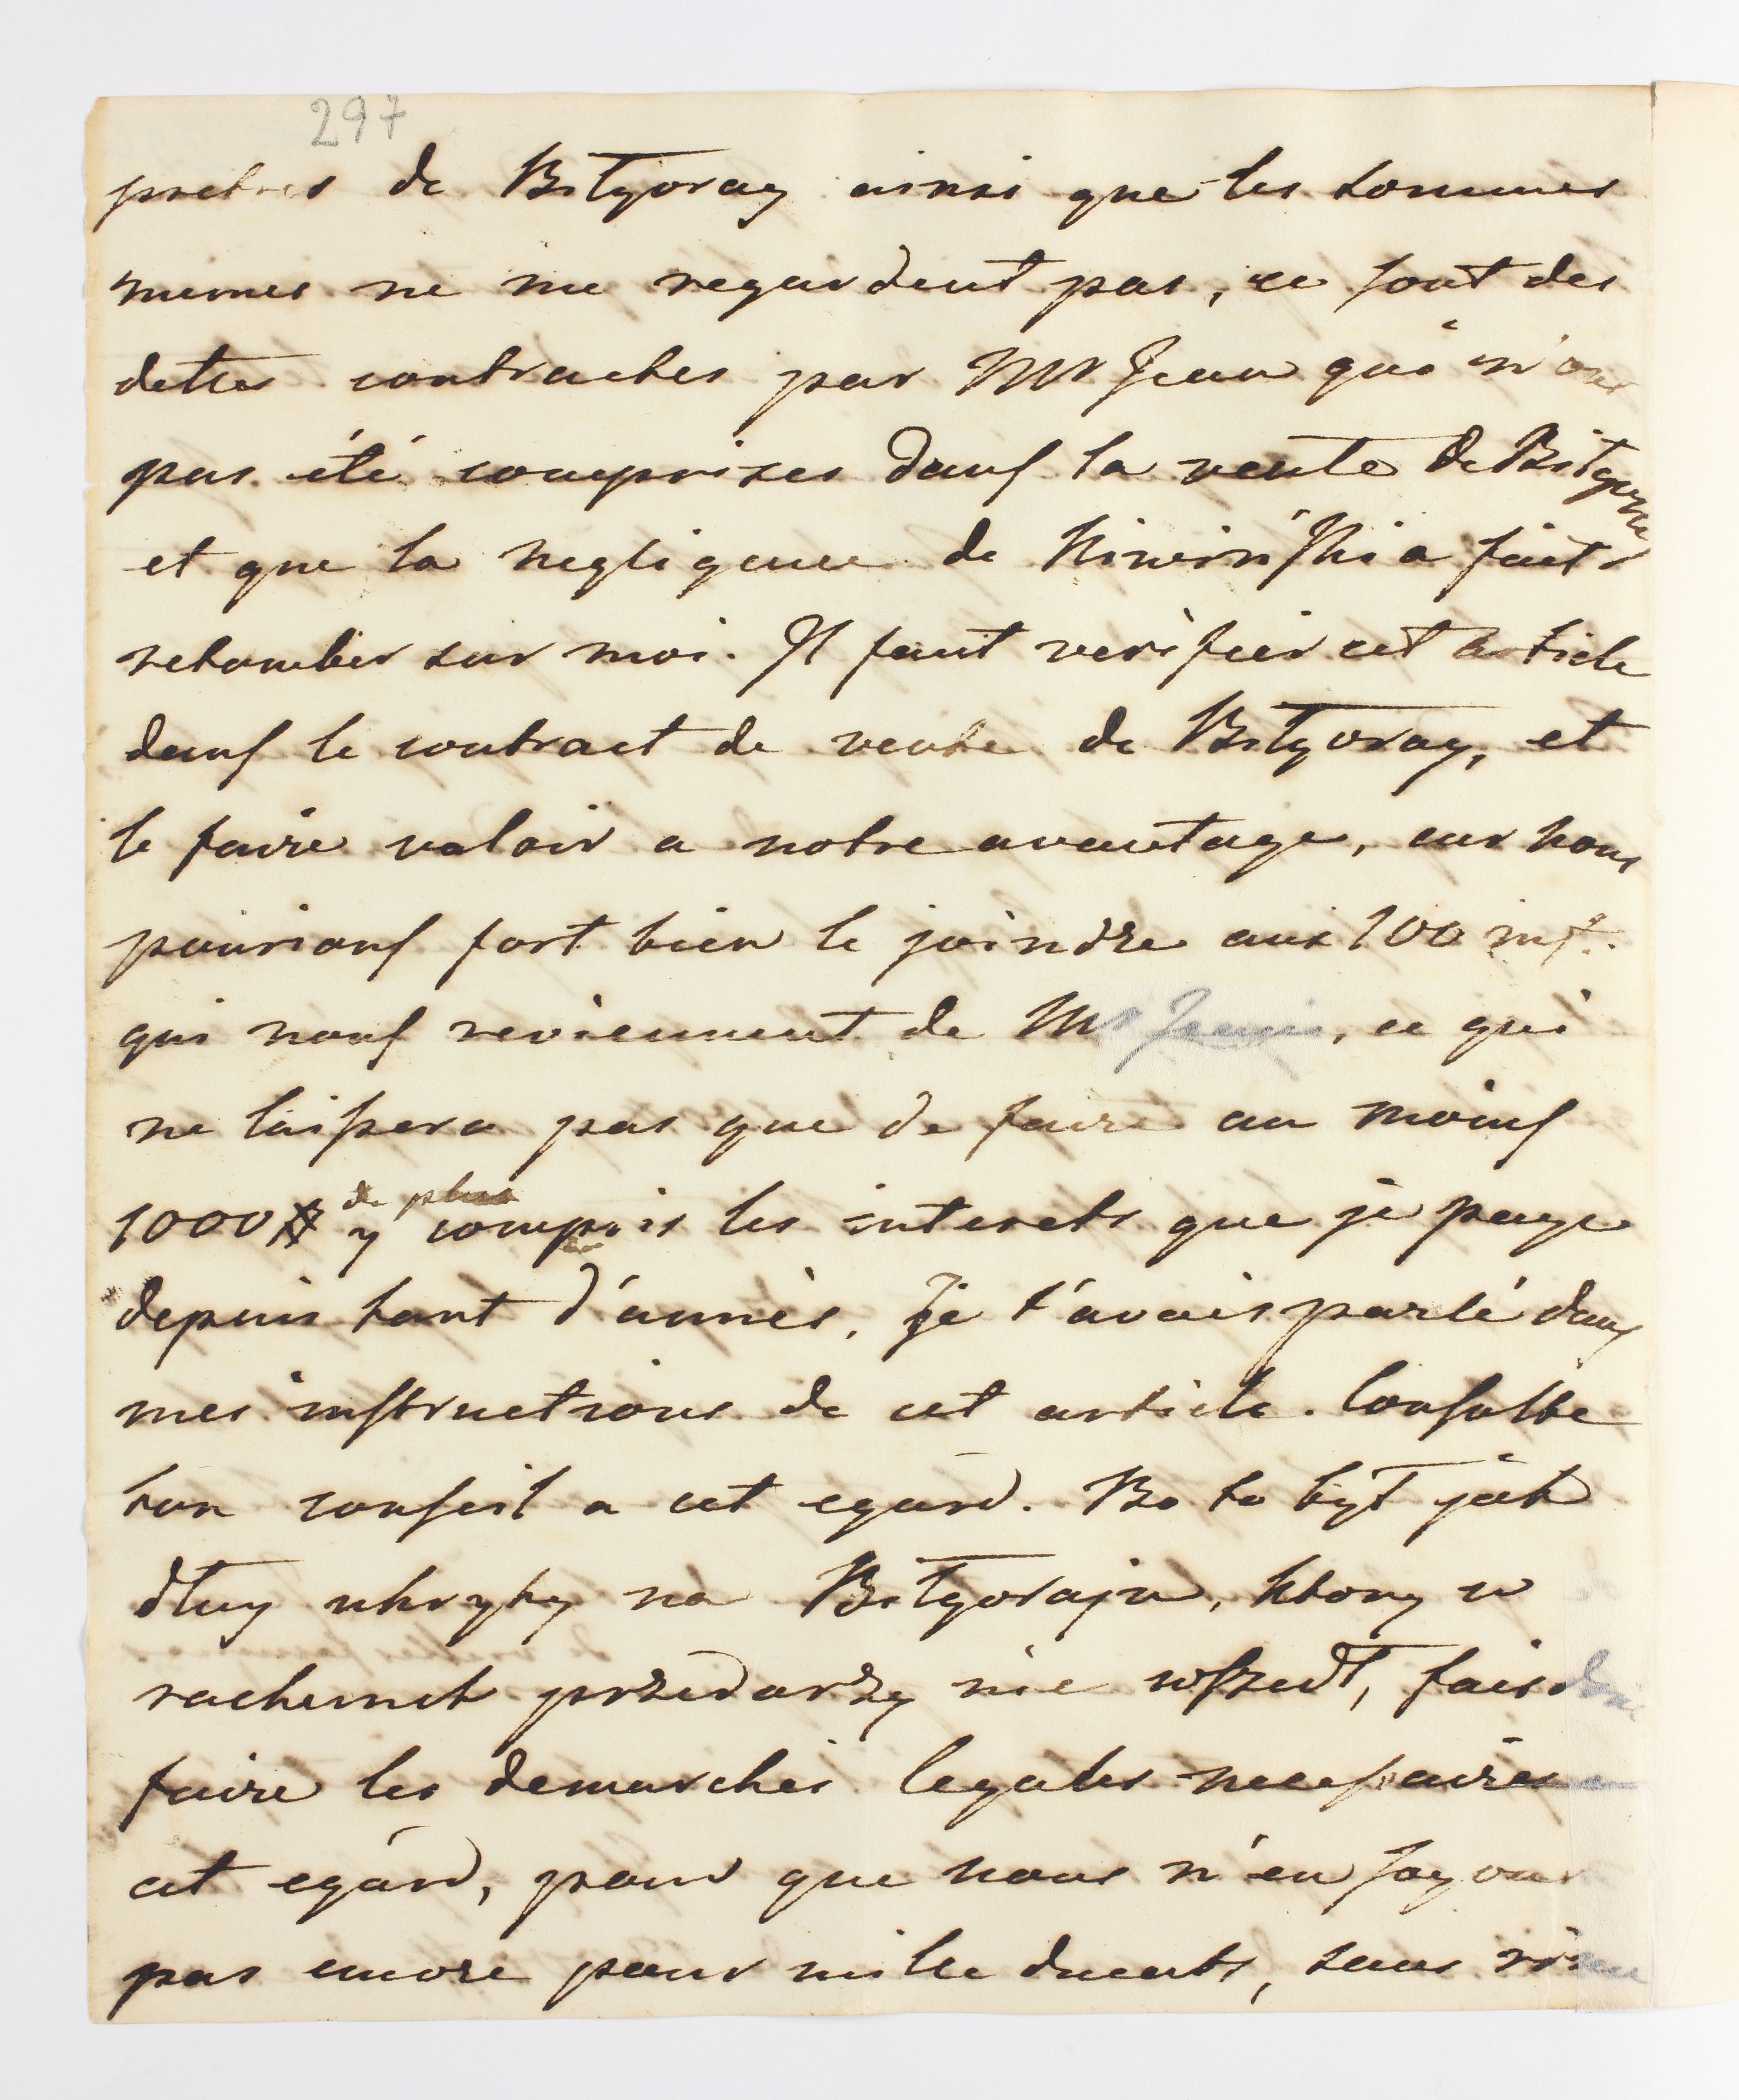 297
pretres de Biłgoray ainsi que les sommes
memes ne me regardent pas, ce sont des
dettes contractes par Mr Jean qui n'ont
pas été comprises dans la vente de Biłgoray
et que la negligence de Kiwiński a fait
retomber sur moi. Il faut verifier cet article
dans le contract de vente de Biłgoray, et
le faire valoir a notre avantage, car nous
pourions fort bien le joindre aux 100 mf.
qui nous reviennent de Mr Jean, ce qui
ne laissera pas que de faire au moins
de plus
1000 # y compris les interets que je paye
depuis tant d'annès. Je t'avais parlé dans
mes instructions de cet article. Consulte
ton conseil a cet egard. Bo to był jak
dług ukryty na Biłgoraju, ktory w
rachunek przedarzy nie wszedł, fais donc
faire les demarches legales necessaires a
cet egard, pour que nous n'en soyons
pas encore pour mille ducats, sans rime